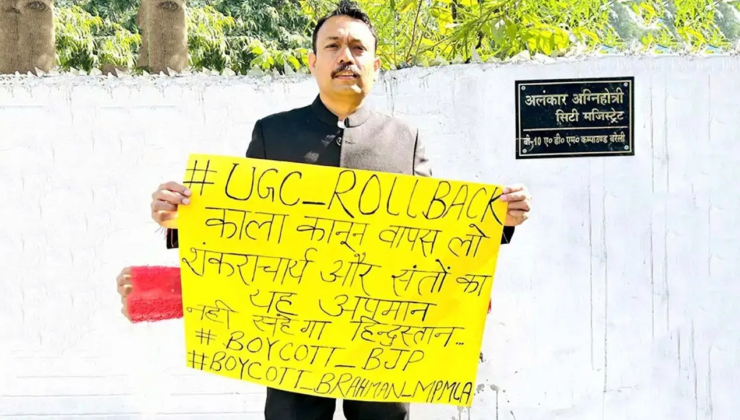 अलंकार अग्निहोत्री
सिटी मजिस्ट्रेट
बी-10 ए० डी० एम० कम्पाउण्ड बरेली
#UGC_ROLLBACK
काला कानून वापस लो
शंकराचार्य और संतों का
यह अपमान
नहीं सहेगा हिन्दुस्तान...
#BOYCOTT_BJP
#BOYCOTT_BRAHMAN_MPMLA